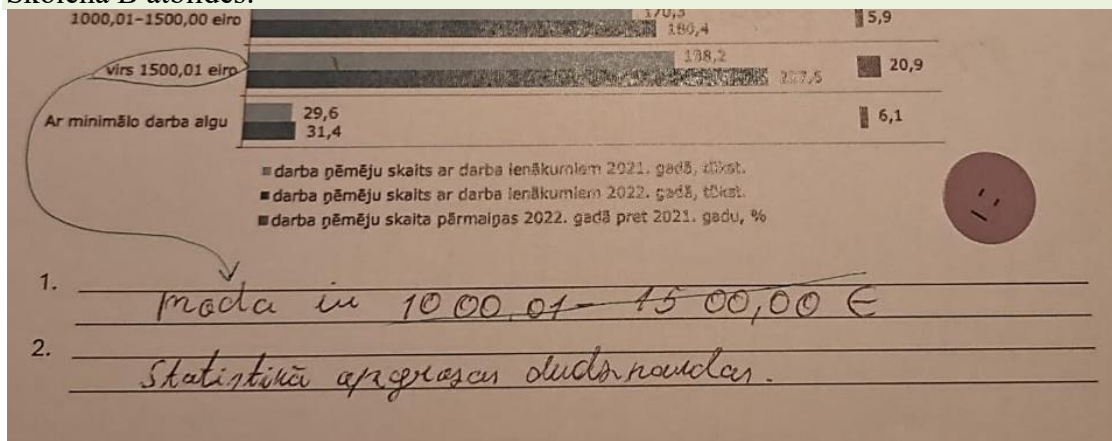 Skolēna B atbildes:
1000,01–1500,00 eiro
170,3
180,4
5,9
virs 1500,01 eiro
188,2
227,5
20,9
Ar minimālo darba algu
29,6
31,4
6,1
darba ņēmēju skaits ar darba ienākumiem 2021. gadā, tūkst.
darba ņēmēju skaits ar darba ienākumiem 2022. gadā, tūkst.
darba ņēmēju skaita pārmaiņas 2022. gadā pret 2021. gadu, %
1. moda ir 1000,01 – 1500,00 €
2. Statistikā apgrozas daudz naudas.